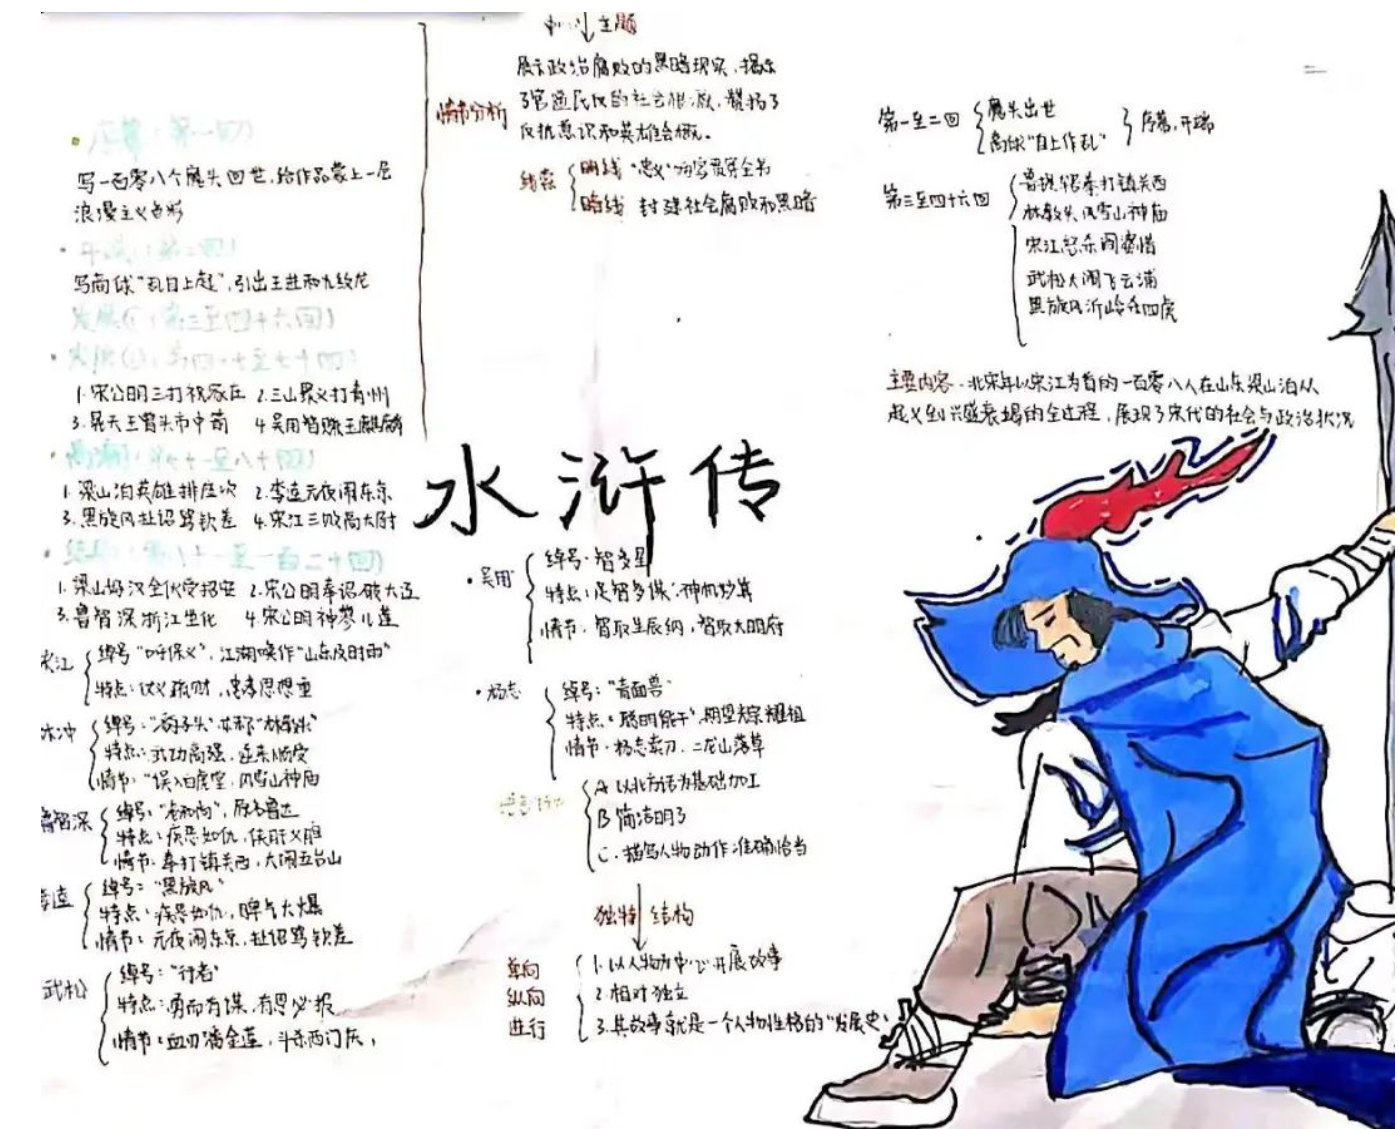 序幕(第一回)
写一百零八个魔头回世,给作品蒙上一层
浪漫主义色彩
开端(第二回)
写高俅"乱自上起",引出王进和九纹龙
发展(第三至四十六回)
发展(四十七至七十四回)
1.宋公明三打祝家庄 2.三山聚义打青州
3.晁天王曾头市中箭 4.吴用智赚玉麒麟
高潮
1.梁山泊英雄排座次 2.李逵元夜闹东京
3.黑旋风扯诏骂钦差 4.宋江三败高太尉
结局(第八十一至一百二十回)
1.梁山好汉全伙受招安 2.宋公明奉诏破大辽
3.鲁智深浙江坐化 4.宋公明神聚儿蓬
宋江
绰号"呼保义",江湖唤作"山东及时雨"
特点:仗义疏财,忠孝思想重
林冲
绰号:"豹子头"
特点:武功高强,逆来顺受
情节:"误入白虎堂,风雪山神庙
鲁智深
绰号:"花和尚",原名鲁达
特点:疾恶如仇,侠肝义胆
情节:拳打镇关西,大闹五台山
李逵
绰号:"黑旋风"
特点:疾恶如仇,脾气火爆
情节:元夜闹东京,扯诏骂钦差
武松
绰号:"行者"
特点:勇而有谋,有恩必报
情节:血刃潘金莲,斗杀西门庆,
主题
情节分析
展示政治腐败的黑暗现实,揭示
了官逼民反的社会根源,赞扬了
反抗意识和英雄会概。
线索
明线 "忠义"内容贯穿全书
暗线 封建社会腐败和黑暗
水浒传
吴用
绰号:智多星
特点:足智多谋,神机妙算
情节:智取生辰纲,智取大明府
杨志
绰号:"青面兽"
特点:聪明能干,期望光宗耀祖
情节:杨志卖刀,二龙山落草
语言
A 以北方话为基础加工
B 简洁明了
C.描写人物动作准确恰当
独特结构
单向
纵向
进行
1.以人物为中心开展故事
2.相对独立
3.其故事就是一个人物性格的"发展史"
第一至二回
魔头出世
高俅"自上作乱"
序幕,开端
第三至四十六回
鲁提辖拳打镇关西
林教头风雪山神庙
宋江怒杀阎婆惜
武松大闹飞云浦
黑旋风沂岭杀四虎
主要内容:北宋年以宋江为首的一百零八人在山东梁山泊从
起义到兴盛衰竭的全过程,展现了宋代的社会与政治状况